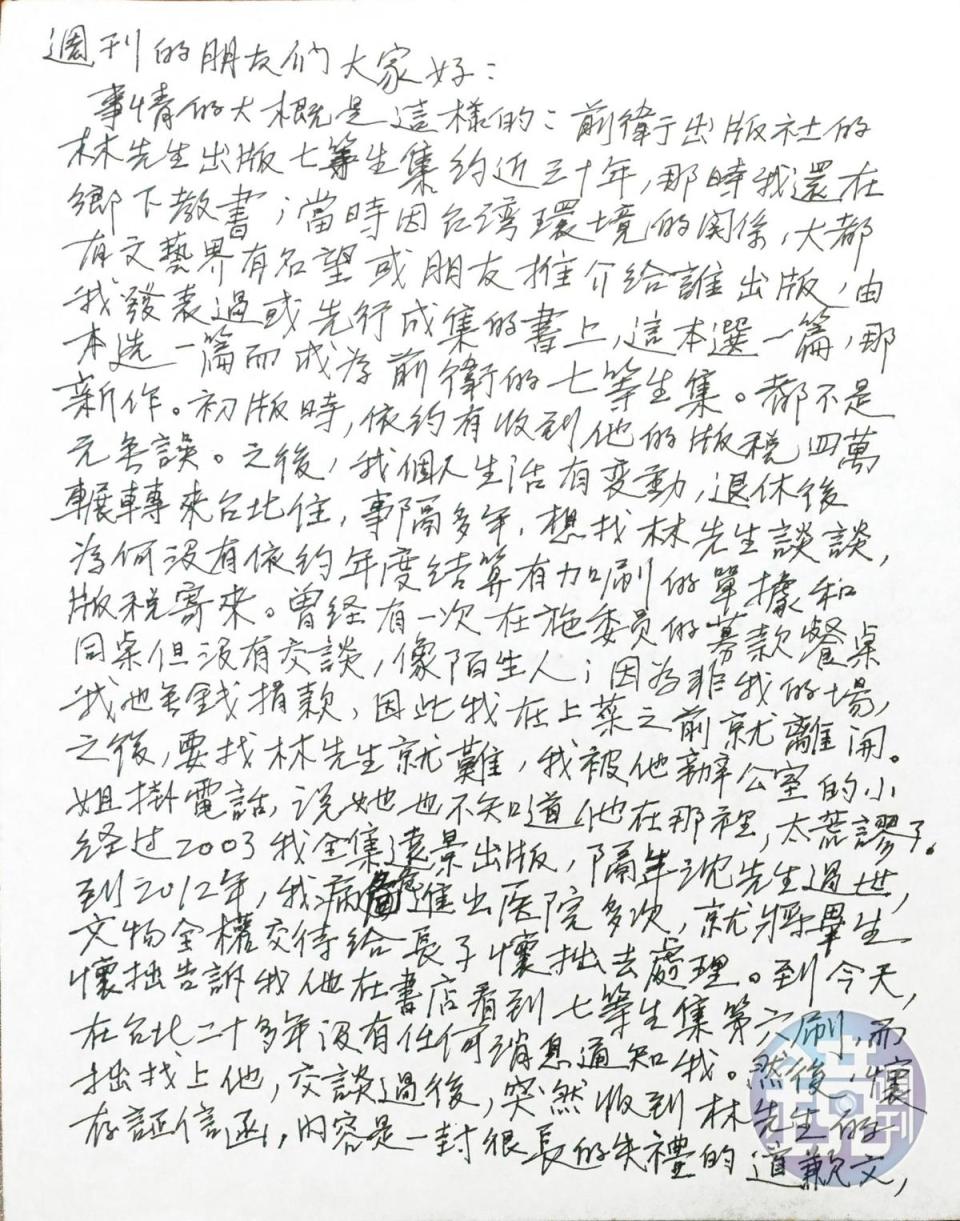 週刊的朋友們大家好：
事情的大概是這樣的：前衛出版社的
林先生出版七等生集約近三十年，那時我還在
鄉下教書；當時因台湾環境的関係，大都
有文藝界有名望或朋友推介給誰出版，由
我發表過或先行成集的書上，這本選一篇，那
本选一篇而成為前衛的七等生集。都不是
新作。初版時，依約有收到他的版税四萬
元無誤。之後，我個人生活有変動，退休後
輾轉來台北住，事隔多年，想找林先生談談，
為何没有依約年度结算有加刷的單據和
版税寄來。曾经有一次在施委員的募款餐桌
同桌但没有交談，像陌生人；因為非我的場，
我也無錢捐款，因此我在上菜之前就離開。
之後，要找林先生就難，我被他辦公室的小
姐掛電話，说她也不知道他在那裡，太荒謬了。
经过2003我全集遠景出版，隔年沈先生過世，
到2012年，我病進出医院多次，就将畢生
文物全權交待給長子懷拙去處理。到今天，
懷拙告訴我他在書店看到七等生集第六刷，而
在台北二十多年没有任何消息通知我。然後，懷
拙找上他，交談過後，突然收到林先生的
存証信函，内容是一封很長的失禮的道歉文，